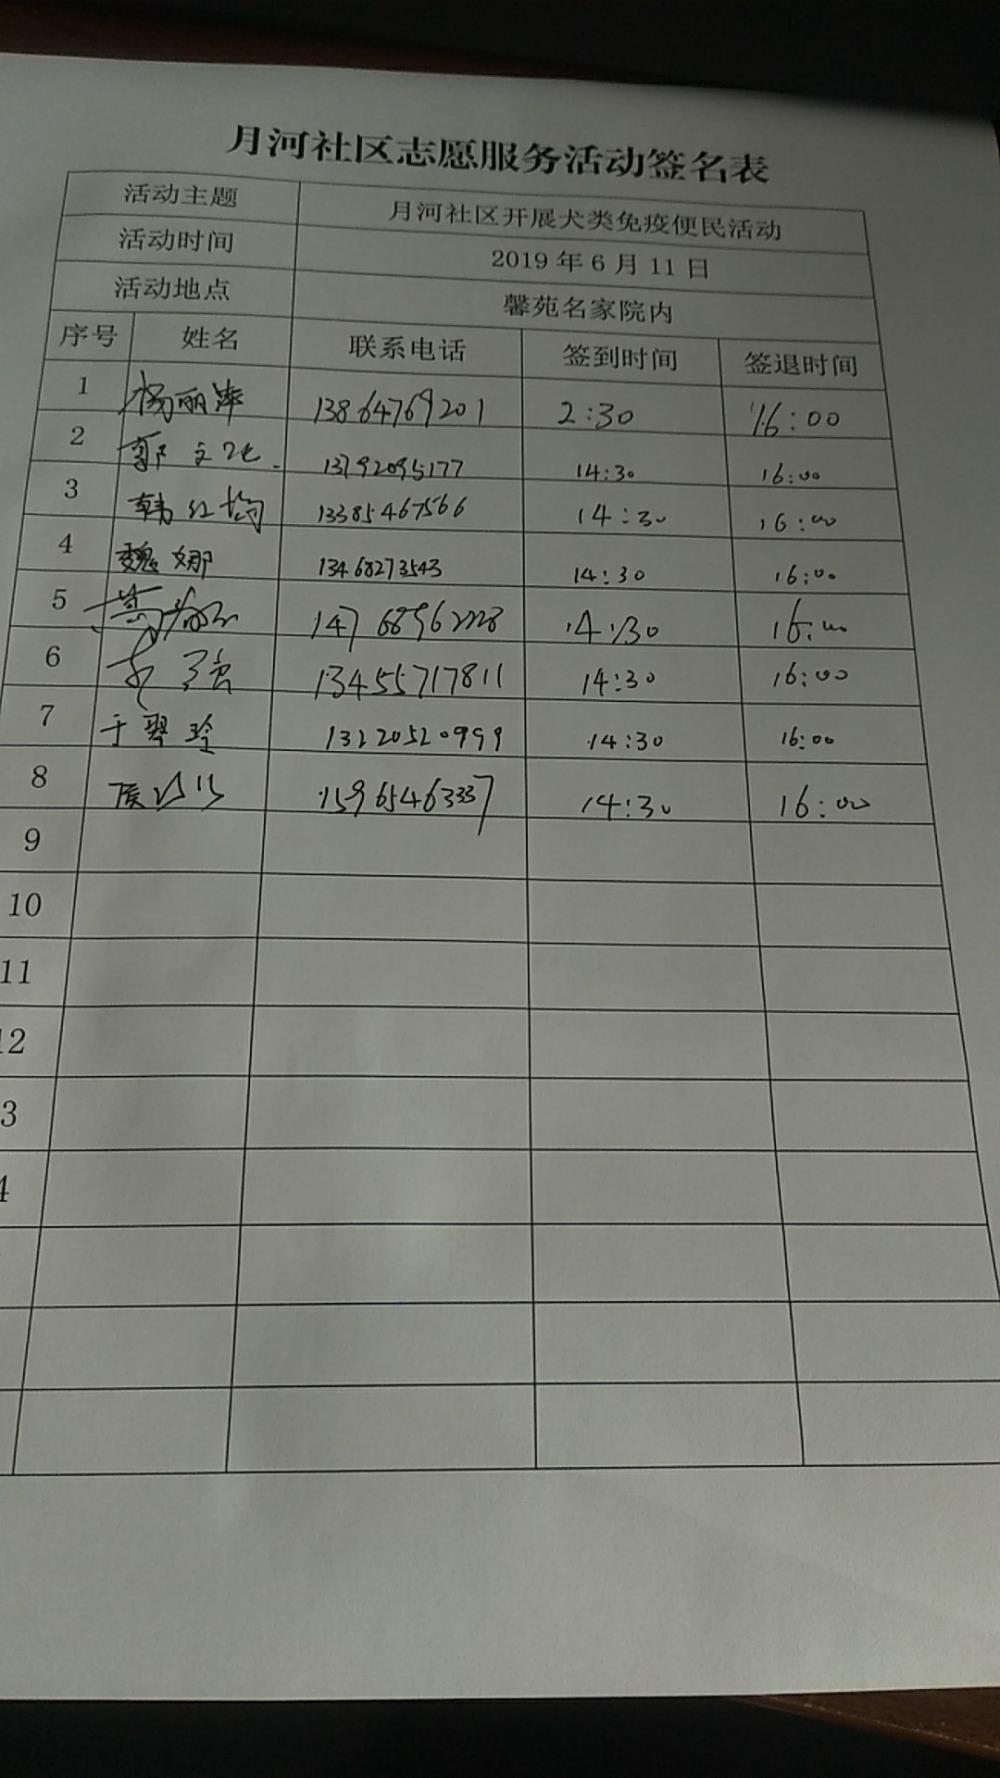 月河社区志愿服务活动签名表
活动主题 月河社区开展犬类免疫便民活动
活动时间 2019年6月11日
活动地点 馨苑名家院内
序号 姓名 联系电话 签到时间 签退时间
1 杨丽萍 13864769201 2:30 16:00
2 郭文化 13792095177 14:30 16:00
3 韩红均 13385467566 14:30 16:00
4 魏娜 13468273543 14:30 16:00
5 14768962228 14:30 16:00
6 强 13455717811 14:30 16:00
7 于翠玲 13220520999 14:30 16:00
8 15965463337 14:30 16:00
9
10
11
12
3
4